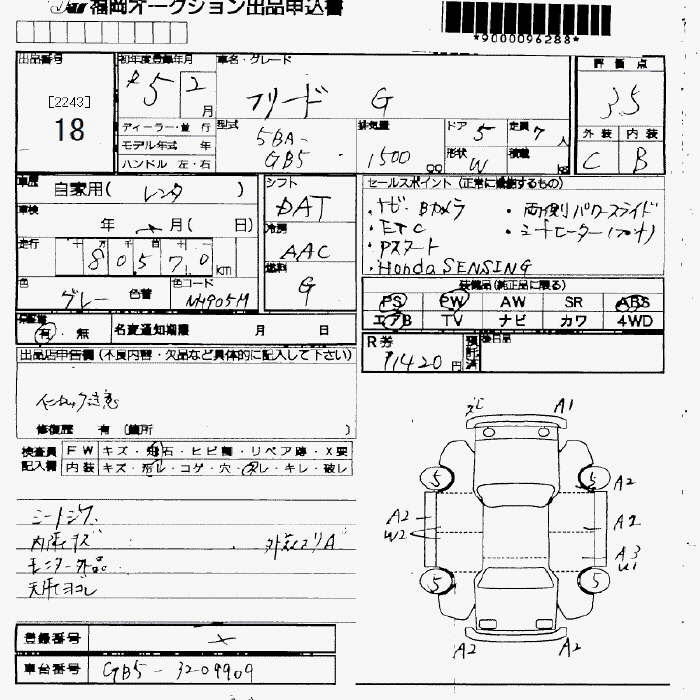 福岡オークション出品申込書
*9000096288*
出品番号
[2243]
18
初年度登録年月
R5 2 月
車名・グレード
フリード G
評価点
3.5
外装 内装
C B
ディーラー・並行
モデル年式 年
ハンドル 左・右
型式
5BA-
GB5
排気量
1500 cc
ドア 5
形状 W
定員 7 人
積載
車歴 自家用 (レンタ)
車検 年 月( 日)
走行 十 万 千 百 十
80570 km
色 グレー 色替
色コード NH905M
シフト
DAT
冷房
AAC
燃料
G
セールスポイント (正常に機能するもの)
・ナビ・Bカメラ ・両側パワースライド
・ETC ・シートヒーター(フロント)
・Pスタート
・Honda SENSING
装備品(純正品に限る)
PS PW AW SR ABS
エアB TV ナビ カワ 4WD
保証書
有・無 名変通知期限 月 日
R券 11420 円
預託済
後日品
出品店申告欄 (不良内容・欠品など具体的に記入して下さい)
修復歴 有 (箇所 )
検査員
記入欄
FW キズ・飛石・ヒビ割・リペア跡・X要
内装 キズ・汚レ・コゲ・穴・スレ・キレ・破レ
シートシワ
内装キズ
モニター外品
天張ヨゴレ
A1
5 5
A2
A2 A2
W2
A3
U1
5 5
A2 A2
登録番号 ×
車台番号 GB5-3209909